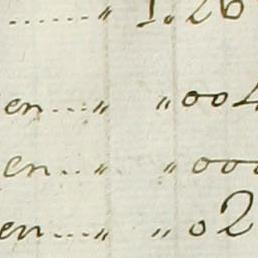 ......„ 1.26
en...„ „004
en..„ „000
en...„ „02